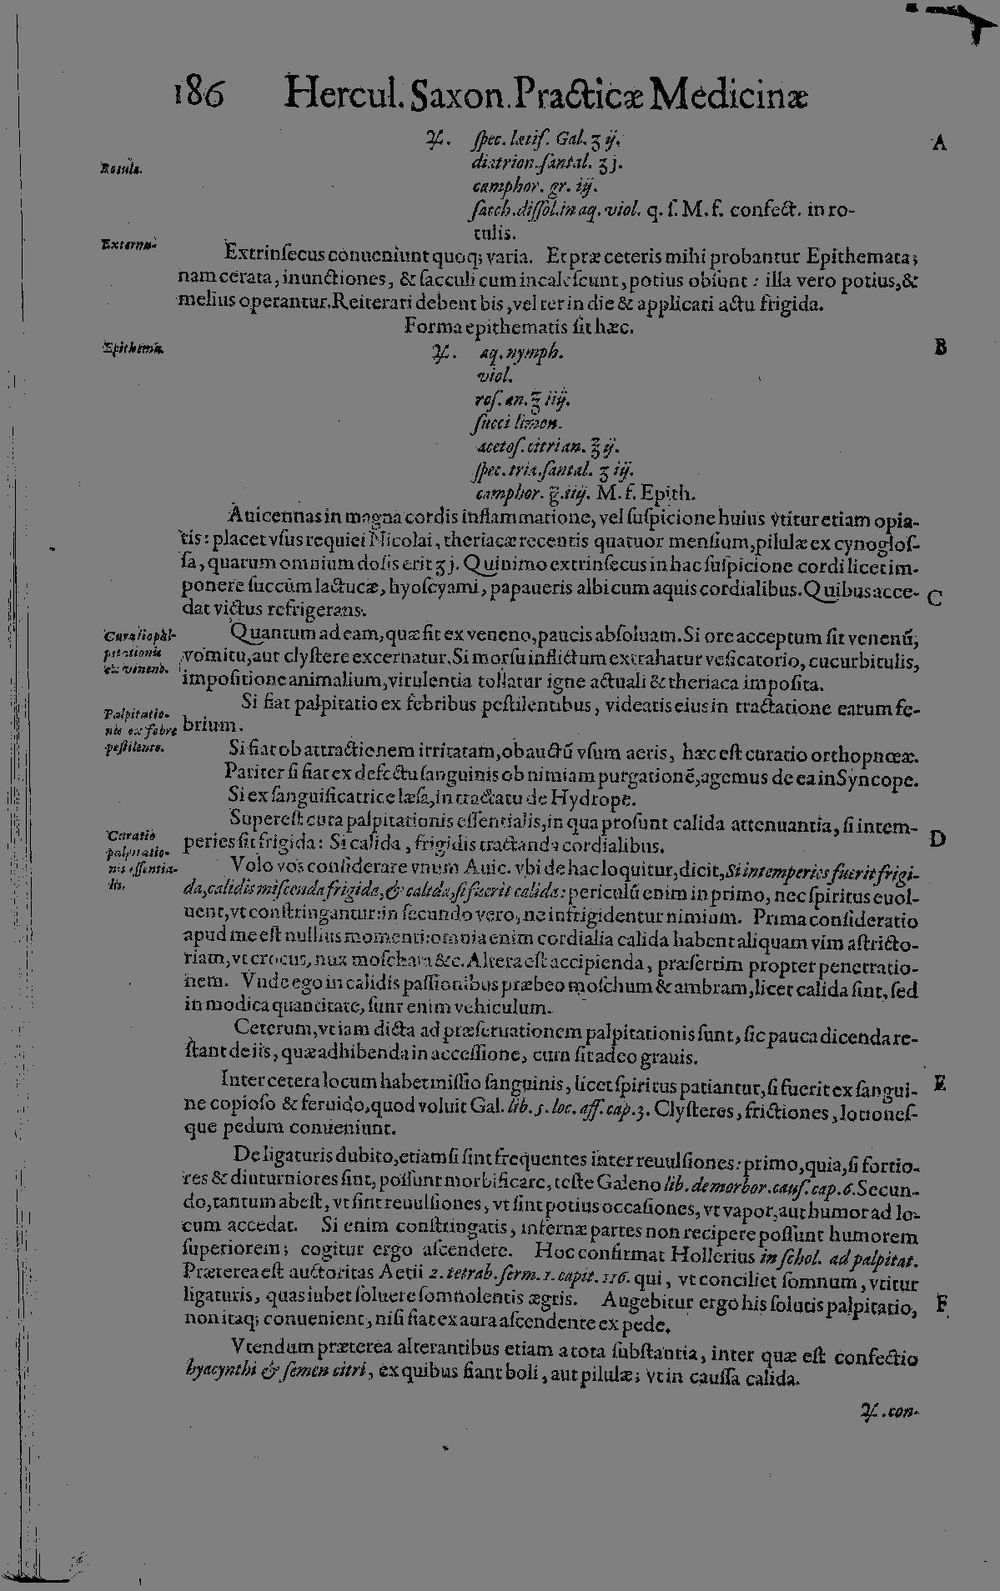 186 Hercul. Saxon. Practicæ Medicinæ
℞. ſpec. lætif. Gal. ʒ ij.
A
diatrion. ſantal. ʒ j.
Rotulæ.
camphor. gr. iij.
ſacch. diſſol. in aq. viol. q. ſ. M. f. confect. in ro-
tulis.
Externa.
Extrinſecus conueniunt quoq; varia. Et præ ceteris mihi probantur Epithemata;
nam cerata, inunctiones, & ſacculi cum incaleſcunt, potius obſunt: illa vero potius, &
melius operantur. Reiterari debent bis, vel ter in die & applicari actu frigida.
Forma epithematis ſit hæc.
Epithema.
℞. aq. nymph.
B
viol.
roſ. an. ℥ iij.
ſucci limon.
acetoſ. citri an. ℥ ij.
ſpec. tria. ſantal. ʒ iij.
camphor. g. iiij. M. f. Epith.
Auicennas in magna cordis inflammatione, vel ſuſpicione huius vtitur etiam opia-
tis: placet vſus requiei Nicolai, theriacæ recentis quatuor menſium, pilulæ ex cynogloſ-
ſa, quarum omnium doſis erit ʒ j. Quinimo extrinſecus in hac ſuſpicione cordi licet im-
ponere ſuccum lactucæ, hyoſcyami, papaueris albi cum aquis cordialibus. Quibus acce-
C
dat victus refrigerans.
Curatio pal-
pitationis
ex veneno.
Quantum ad eam, quæ fit ex veneno, paucis abſoluam. Si ore acceptum ſit venenũ,
vomitu, aut clyſtere excernatur. Si morſu inflictum extrahatur veſicatorio, cucurbitulis,
impoſitione animalium, virulentia tollatur igne actuali & theriaca impoſita.
Palpitatio-
nis ex febre
peſtilente.
Si fiat palpitatio ex febribus peſtilentibus, videatis eius in tractatione earum fe-
brium.
Si fiat ob attractionem irritatam, ob auctũ vſum aeris, hæc eſt curatio orthopnœæ.
Pariter ſi fiat ex defectu ſanguinis ob nimiam purgationẽ, agemus de ea in Syncope.
Si ex ſanguificatrice læſa, in tractatu de Hydrope.
Curatio
palpitatio-
nis eſſentia-
lis.
Supereſt cura palpitationis eſſentialis, in qua proſunt calida attenuantia, ſi intem-
D
peries ſit frigida: Si calida, frigidis tractanda cordialibus.
Volo vos conſiderare vnum Auic. vbi de hac loquitur, dicit, Si intemperies fuerit frigi-
da, calidis miſcenda frigida, & calida, ſi fuerit calida: periculũ enim in primo, nec ſpiritus euol-
uent, vt conſtringantur: in ſecundo vero, ne infrigidentur nimium. Prima conſideratio
apud me eſt nullius momenti: omnia enim cordialia calida habent aliquam vim aſtricto-
riam, vt crocus, nux moſchata &c. Altera eſt accipienda, præſertim propter penetratio-
nem. Vnde ego in calidis paſſionibus præbeo moſchum & ambram, licet calida ſint, ſed
in modica quantitate, ſunt enim vehiculum.
Ceterum, vt iam dicta ad præſeruationem palpitationis ſunt, ſic pauca dicenda re-
ſtant de iis, quæ adhibenda in acceſſione, cum ſit adeo grauis.
Inter cetera locum habet miſſio ſanguinis, licet ſpiritus patiantur, ſi fuerit ex ſangui-
E
ne copioſo & feruido, quod voluit Gal. lib. 5. loc. aff. cap. 3. Clyſteres, frictiones, lotioneſ-
que pedum conueniunt.
De ligaturis dubito, etiamſi ſint frequentes inter reuulſiones: primo, quia, ſi fortio-
res & diuturniores ſint, poſſunt morbificare, teſte Galeno lib. de morbor. cauſ. cap. 6. Secun-
do, tantum abeſt, vt ſint reuulſiones, vt ſint potius occaſiones, vt vapor, aut humor ad lo-
cum accedat. Si enim conſtringatis, infernæ partes non recipere poſſunt humorem
ſuperiorem; cogitur ergo aſcendere. Hoc confirmat Hollerius in ſchol. ad palpitat.
Præterea eſt auctoritas Aetii 2. tetrab. ſerm. 1. capit. 116. qui, vt conciliet ſomnum, vtitur
ligaturis, quas iubet ſoluere ſomnolentis ægris. Augebitur ergo his ſolutis palpitatio,
F
non itaq; conuenient, niſi fiat ex aura aſcendente ex pede.
Vtendum præterea alterantibus etiam a tota ſubſtantia, inter quæ eſt confectio
hyacynthi & ſemen citri, ex quibus fiant boli, aut pilulæ; vt in cauſſa calida.
℞. con-